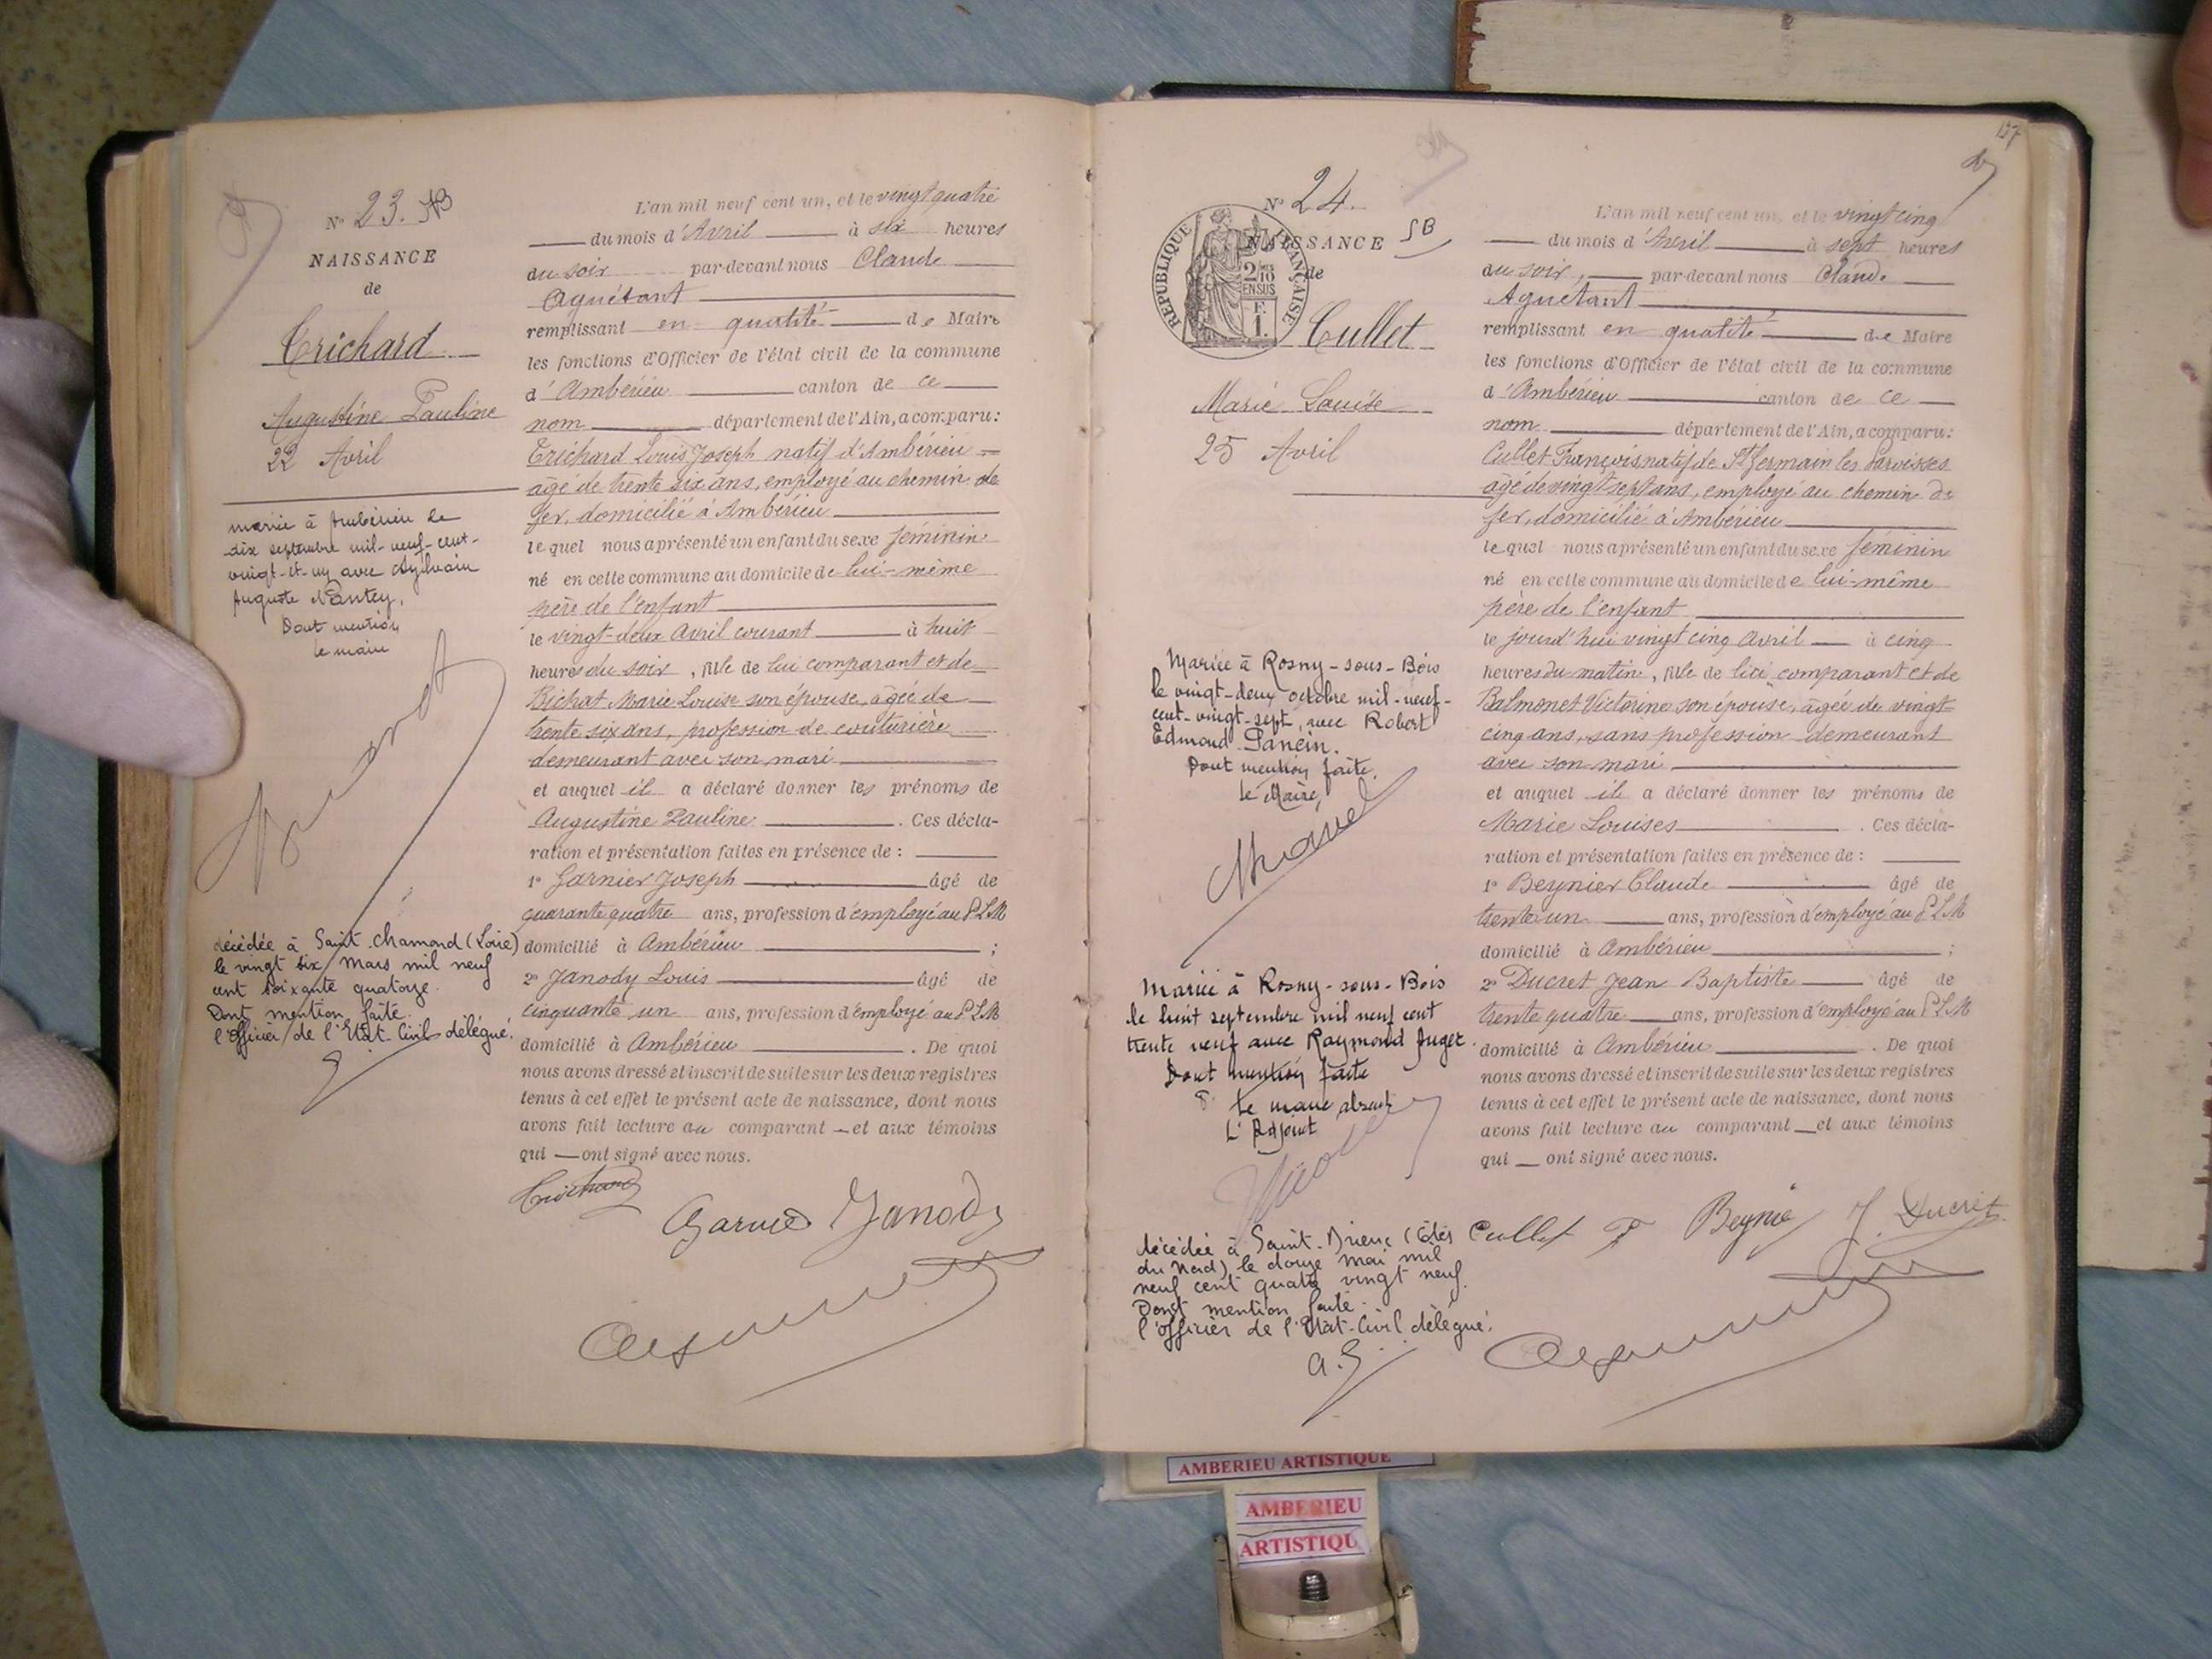 N° 23.
NAISSANCE
de
Trichard
Augustine Pauline
22 Avril
mariée à Ambérieu le
dix septembre mil-neuf-cent-
vingt-et-un avec Sylvain
Auguste Nantey,
Dont mention
le maire
décédée à Saint-Chamond (Loire)
le vingt six Mars mil neuf
cent soixante quatorze.
Dont mention faite.
l'officier de l'Etat-Civil délégué.
L'an mil neuf cent un, et le vingt quatre
du mois d'Avril à six heures
du soir par-devant nous Claude
Aguétant
remplissant en qualité de Maire
les fonctions d'Officier de l'état civil de la commune
d'Ambérieu canton de ce
nom département de l'Ain, a comparu:
Trichard Louis Joseph natif d'Ambérieu
âgé de trente six ans, employé au chemin de
fer, domicilié à Ambérieu
lequel nous a présenté un enfant du sexe féminin
né en cette commune au domicile de lui-même
père de l'enfant
le vingt-deux Avril courant à huit
heures du soir, fille de lui comparant et de
Bichat Marie Louise son épouse, âgée de
trente six ans, profession de couturière
demeurant avec son mari
et auquel il a déclaré donner les prénoms de
Augustine Pauline. Ces décla-
ration et présentation faites en présence de :
1° Garnier Joseph âgé de
quarante quatre ans, profession d'employé au PLM
domicilié à Ambérieu ;
2° Janody Louis âgé de
cinquante un ans, profession d'employé au PLM
domicilié à Ambérieu. De quoi
nous avons dressé et inscrit de suite sur les deux registres
tenus à cet effet le présent acte de naissance, dont nous
avons fait lecture au comparant et aux témoins
qui ont signé avec nous.
Trichard
Garnier Janody
157
N° 24.
NAISSANCE SB
de
RÉPUBLIQUE FRANÇAISE
2/10
EN SUS
F.
1.
Cullet
Marie Louise
25 Avril
Mariée à Rosny-sous-Bois
le vingt-deux octobre mil-neuf-
cent-vingt-sept, avec Robert
Edmond Pancin.
Dont mention faite.
Le Maire,
Mariée à Rosny-sous-Bois
le huit septembre mil neuf cent
trente neuf avec Raymond Auger.
Dont mention faite
Le maire absent
L'Adjoint
décédée à Saint-Brieuc (Côtes
du Nord) le douze mai mil
neuf cent quatre vingt neuf.
Dont mention faite.
l'officier de l'Etat-Civil délégué.
L'an mil neuf cent un, et le vingt cinq
du mois d'Avril à sept heures
du soir, par-devant nous Claude
Aguétant
remplissant en qualité de Maire
les fonctions d'Officier de l'état civil de la commune
d'Ambérieu canton de ce
nom département de l'Ain, a comparu:
Cullet François natif de St Germain les Paroisses
âgé de vingt sept ans, employé au chemin de
fer, domicilié à Ambérieu
lequel nous a présenté un enfant du sexe féminin
né en cette commune au domicile de lui-même
père de l'enfant
le jourd'hui vingt cinq Avril à cinq
heures du matin, fille de lui comparant et de
Balmonet Victorine son épouse, âgée de vingt
cinq ans, sans profession demeurant
avec son mari
et auquel il a déclaré donner les prénoms de
Marie Louises. Ces décla-
ration et présentation faites en présence de :
1° Beynier Claude âgé de
trente un ans, profession d'employé au PLM
domicilié à Ambérieu ;
2° Ducret Jean Baptiste âgé de
trente quatre ans, profession d'employé au PLM
domicilié à Ambérieu. De quoi
nous avons dressé et inscrit de suite sur les deux registres
tenus à cet effet le présent acte de naissance, dont nous
avons fait lecture au comparant et aux témoins
qui ont signé avec nous.
Cullet F Beynié J. Ducret
AMBERIEU ARTISTIQUE
AMBERIEU
ARTISTIQU